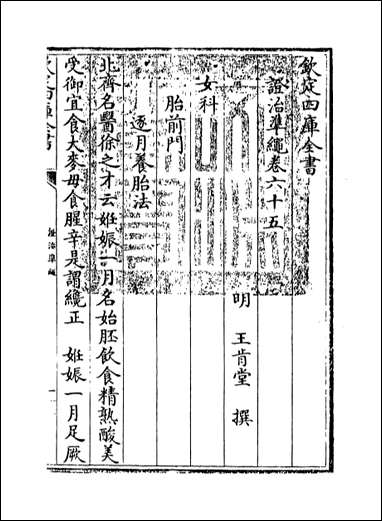 欽定四庫全書
證治準繩卷六十五
明 王肯堂 撰
女科
胎前門
逐月養胎法
北齊名醫徐之才云姙娠一月名始胚飲食精熟酸美
受御宜食大麥毋食腥辛是謂纔正 姙娠一月足厥
證治準繩